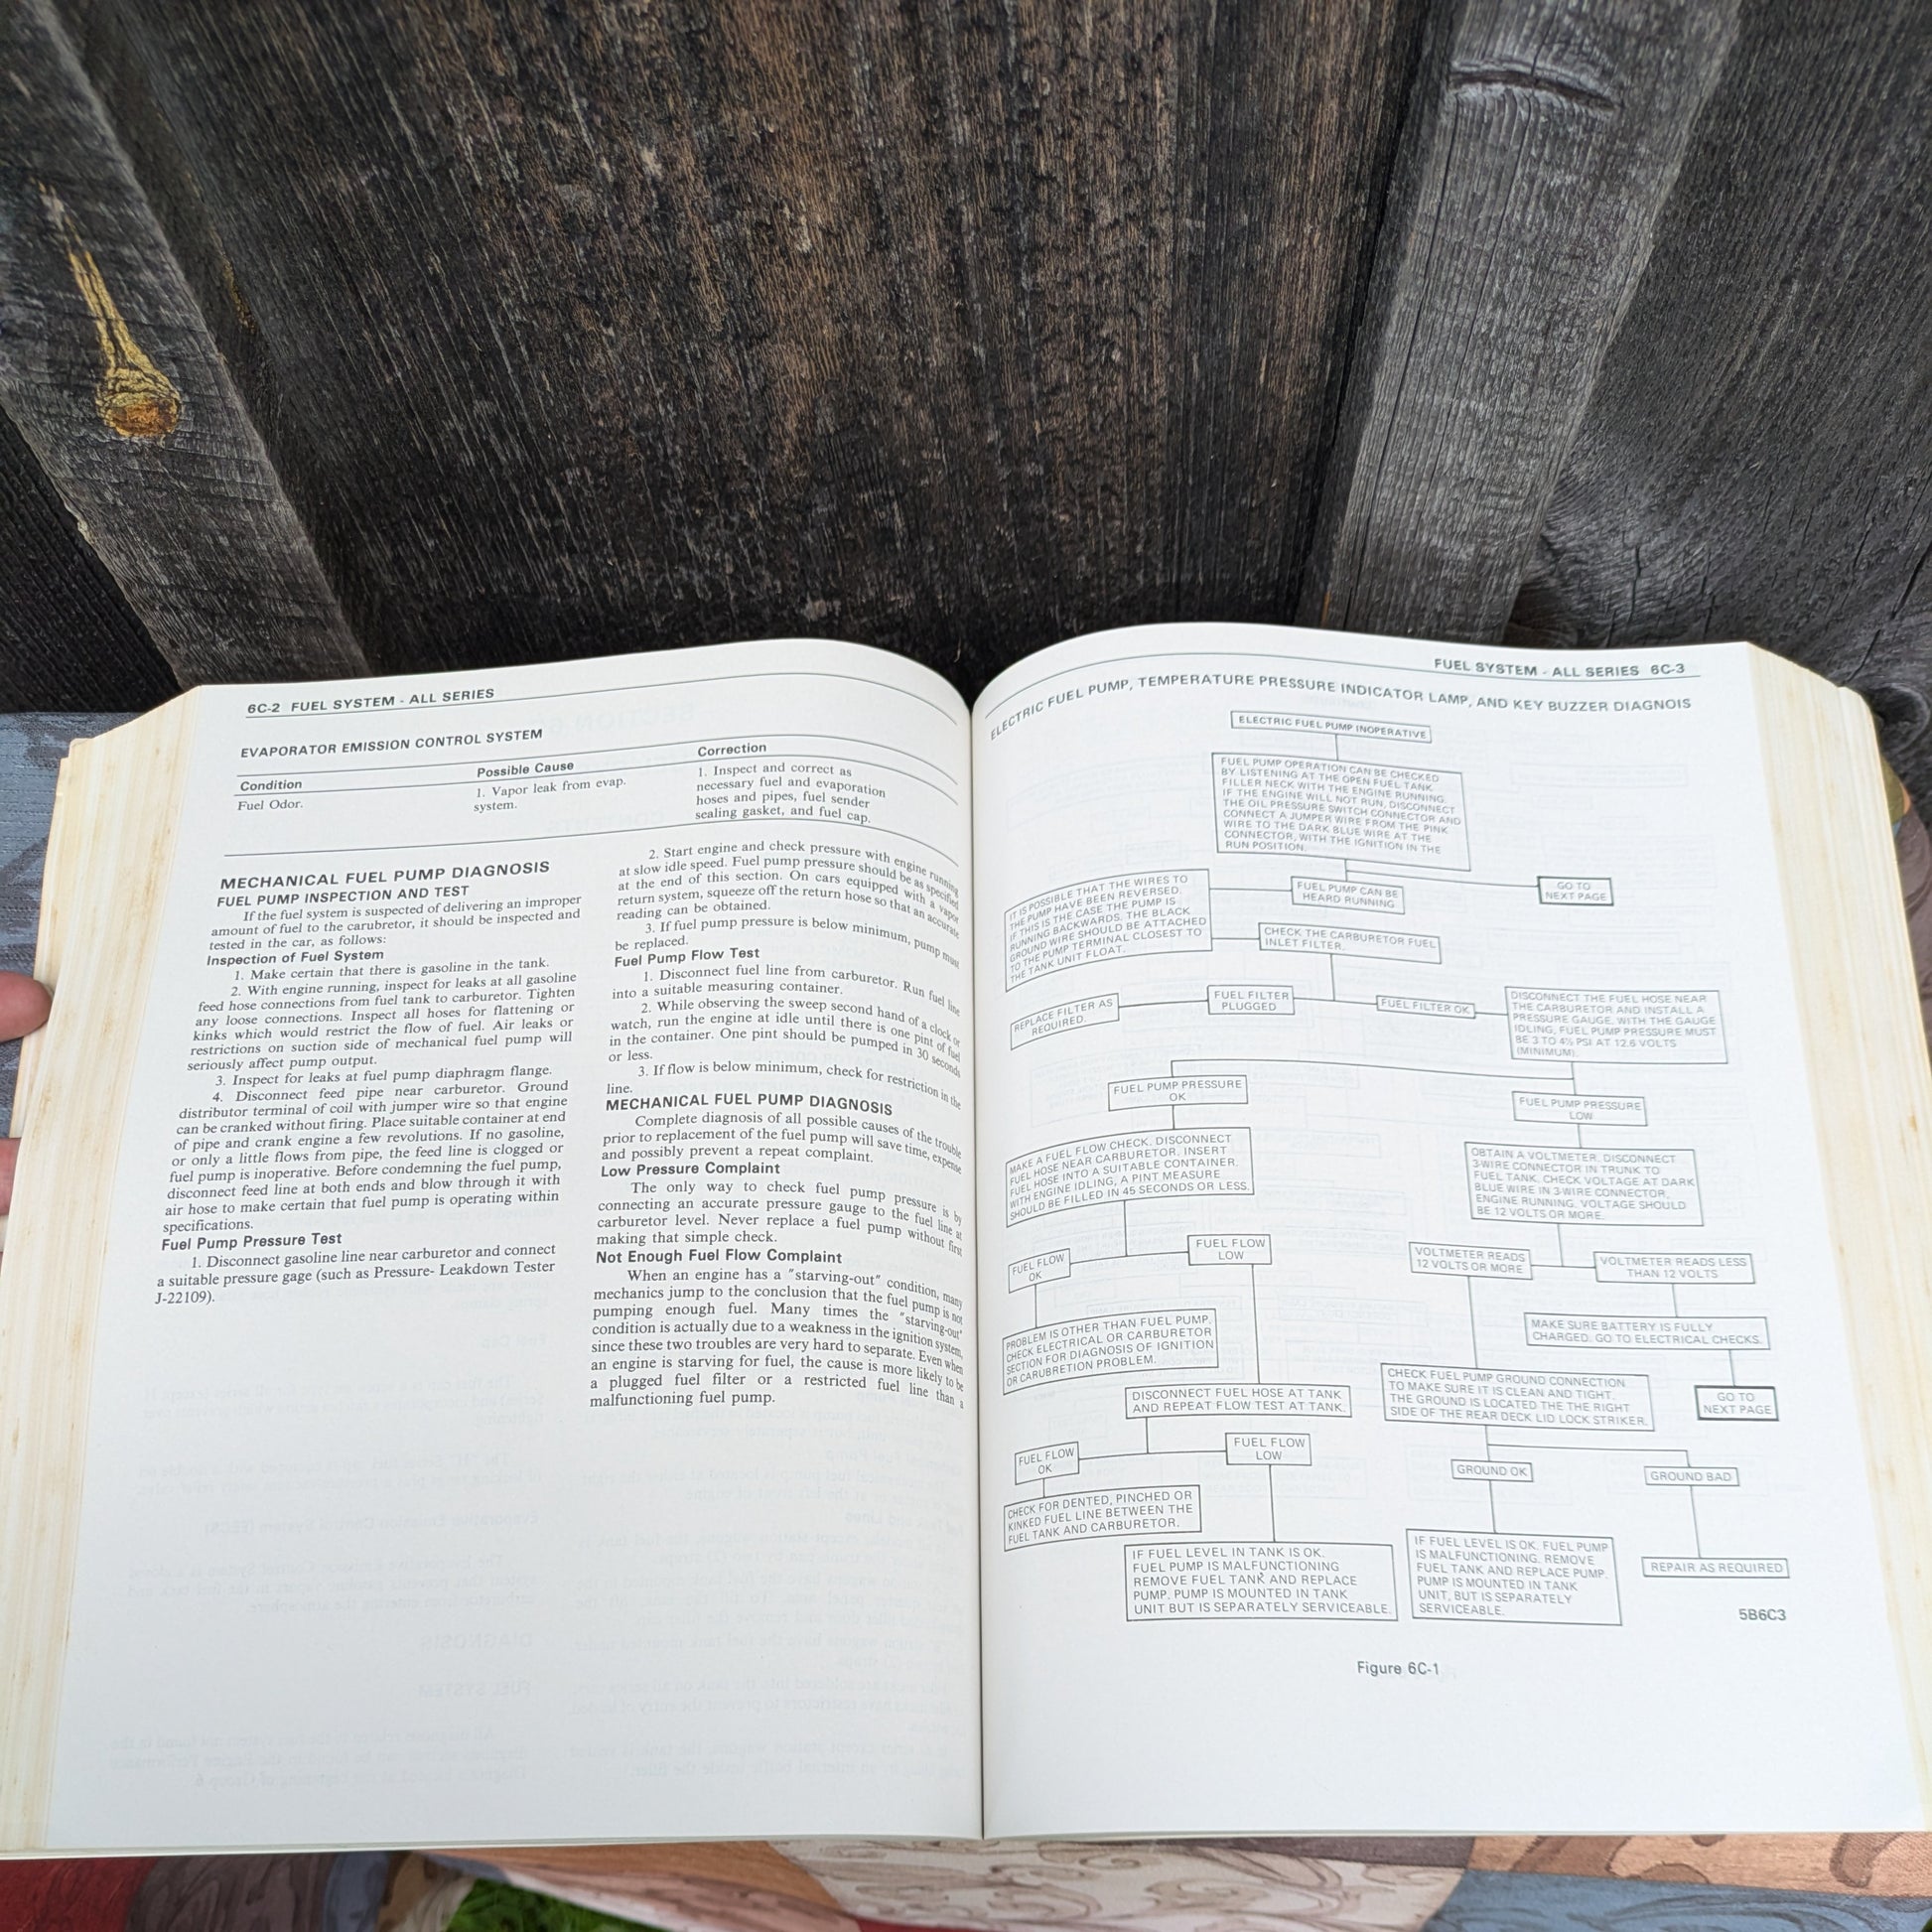 6C-2 FUEL SYSTEM - ALL SERIES
EVAPORATOR EMISSION CONTROL SYSTEM
Condition Possible Cause Correction
Fuel Odor.
1. Vapor leak from evap.
system.
1. Inspect and correct as
necessary fuel and evaporation
hoses and pipes, fuel sender
sealing gasket, and fuel cap.
MECHANICAL FUEL PUMP DIAGNOSIS
FUEL PUMP INSPECTION AND TEST
If the fuel system is suspected of delivering an improper
amount of fuel to the carubretor, it should be inspected and
tested in the car, as follows:
Inspection of Fuel System
1. Make certain that there is gasoline in the tank.
2. With engine running, inspect for leaks at all gasoline
feed hose connections from fuel tank to carburetor. Tighten
any loose connections. Inspect all hoses for flattening or
kinks which would restrict the flow of fuel. Air leaks or
restrictions on suction side of mechanical fuel pump will
seriously affect pump output.
3. Inspect for leaks at fuel pump diaphragm flange.
4. Disconnect feed pipe near carburetor. Ground
distributor terminal of coil with jumper wire so that engine
can be cranked without firing. Place suitable container at end
of pipe and crank engine a few revolutions. If no gasoline,
or only a little flows from pipe, the feed line is clogged or
fuel pump is inoperative. Before condemning the fuel pump,
disconnect feed line at both ends and blow through it with
air hose to make certain that fuel pump is operating within
specifications.
Fuel Pump Pressure Test
1. Disconnect gasoline line near carburetor and connect
a suitable pressure gage (such as Pressure- Leakdown Tester
J-22109).
2. Start engine and check pressure with engine running
at slow idle speed. Fuel pump pressure should be as specified
at the end of this section. On cars equipped with a vapor
return system, squeeze off the return hose so that an accurate
reading can be obtained.
3. If fuel pump pressure is below minimum, pump must
be replaced.
Fuel Pump Flow Test
1. Disconnect fuel line from carburetor. Run fuel line
into a suitable measuring container.
2. While observing the sweep second hand of a clock or
watch, run the engine at idle until there is one pint of fuel
in the container. One pint should be pumped in 30 seconds
or less.
3. If flow is below minimum, check for restriction in the
line.
MECHANICAL FUEL PUMP DIAGNOSIS
Complete diagnosis of all possible causes of the trouble
prior to replacement of the fuel pump will save time, expense
and possibly prevent a repeat complaint.
Low Pressure Complaint
The only way to check fuel pump pressure is by
connecting an accurate pressure gauge to the fuel line at
carburetor level. Never replace a fuel pump without first
making that simple check.
Not Enough Fuel Flow Complaint
When an engine has a "starving-out" condition, many
mechanics jump to the conclusion that the fuel pump is not
pumping enough fuel. Many times the "starving-out"
condition is actually due to a weakness in the ignition system,
since these two troubles are very hard to separate. Even when
an engine is starving for fuel, the cause is more likely to be
a plugged fuel filter or a restricted fuel line than a
malfunctioning fuel pump.
FUEL SYSTEM - ALL SERIES 6C-3
ELECTRIC FUEL PUMP, TEMPERATURE PRESSURE INDICATOR LAMP, AND KEY BUZZER DIAGNOIS
ELECTRIC FUEL PUMP INOPERATIVE
FUEL PUMP OPERATION CAN BE CHECKED
BY LISTENING AT THE OPEN FUEL TANK
FILLER NECK WITH THE ENGINE RUNNING.
IF THE ENGINE WILL NOT RUN, DISCONNECT
THE OIL PRESSURE SWITCH CONNECTOR AND
CONNECT A JUMPER WIRE FROM THE PINK
WIRE TO THE DARK BLUE WIRE AT THE
CONNECTOR, WITH THE IGNITION IN THE
RUN POSITION.
IT IS POSSIBLE THAT THE WIRES TO
THE PUMP HAVE BEEN REVERSED.
IF THIS IS THE CASE THE PUMP IS
RUNNING BACKWARDS. THE BLACK
GROUND WIRE SHOULD BE ATTACHED
TO THE PUMP TERMINAL CLOSEST TO
THE TANK UNIT FLOAT.
FUEL PUMP CAN BE
HEARD RUNNING
GO TO
NEXT PAGE
CHECK THE CARBURETOR FUEL
INLET FILTER.
REPLACE FILTER AS
REQUIRED.
FUEL FILTER
PLUGGED
FUEL FILTER OK
DISCONNECT THE FUEL HOSE NEAR
THE CARBURETOR AND INSTALL A
PRESSURE GAUGE. WITH THE GAUGE
IDLING, FUEL PUMP PRESSURE MUST
BE 3 TO 4½ PSI AT 12.6 VOLTS
(MINIMUM).
FUEL PUMP PRESSURE
OK
FUEL PUMP PRESSURE
LOW
MAKE A FUEL FLOW CHECK. DISCONNECT
FUEL HOSE NEAR CARBURETOR. INSERT
FUEL HOSE INTO A SUITABLE CONTAINER.
WITH ENGINE IDLING, A PINT MEASURE
SHOULD BE FILLED IN 45 SECONDS OR LESS.
OBTAIN A VOLTMETER. DISCONNECT
3-WIRE CONNECTOR IN TRUNK TO
FUEL TANK. CHECK VOLTAGE AT DARK
BLUE WIRE IN 3-WIRE CONNECTOR,
ENGINE RUNNING. VOLTAGE SHOULD
BE 12 VOLTS OR MORE.
FUEL FLOW
OK
FUEL FLOW
LOW
VOLTMETER READS
12 VOLTS OR MORE
VOLTMETER READS LESS
THAN 12 VOLTS
PROBLEM IS OTHER THAN FUEL PUMP.
CHECK ELECTRICAL OR CARBURETOR
SECTION FOR DIAGNOSIS OF IGNITION
OR CARUBRETION PROBLEM.
MAKE SURE BATTERY IS FULLY
CHARGED. GO TO ELECTRICAL CHECKS.
DISCONNECT FUEL HOSE AT TANK
AND REPEAT FLOW TEST AT TANK.
CHECK FUEL PUMP GROUND CONNECTION
TO MAKE SURE IT IS CLEAN AND TIGHT.
THE GROUND IS LOCATED THE THE RIGHT
SIDE OF THE REAR DECK LID LOCK STRIKER.
GO TO
NEXT PAGE
FUEL FLOW
OK
FUEL FLOW
LOW
GROUND OK
GROUND BAD
CHECK FOR DENTED, PINCHED OR
KINKED FUEL LINE BETWEEN THE
FUEL TANK AND CARBURETOR.
IF FUEL LEVEL IN TANK IS OK.
FUEL PUMP IS MALFUNCTIONING
REMOVE FUEL TANK AND REPLACE
PUMP. PUMP IS MOUNTED IN TANK
UNIT BUT IS SEPARATELY SERVICEABLE.
IF FUEL LEVEL IS OK. FUEL PUMP
IS MALFUNCTIONING. REMOVE
FUEL TANK AND REPLACE PUMP.
PUMP IS MOUNTED IN TANK
UNIT, BUT IS SEPARATELY
SERVICEABLE.
REPAIR AS REQUIRED
5B6C3
Figure 6C-1